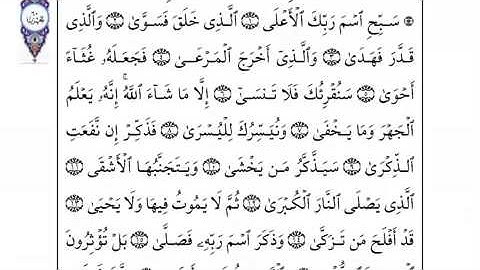 سَبِّحِ ٱسْمَ رَبِّكَ ٱلْأَعْلَى ۝ ٱلَّذِى خَلَقَ فَسَوَّىٰ ۝ وَٱلَّذِى
قَدَّرَ فَهَدَىٰ ۝ وَٱلَّذِىٓ أَخْرَجَ ٱلْمَرْعَىٰ ۝ فَجَعَلَهُۥ غُثَآءً
أَحْوَىٰ ۝ سَنُقْرِئُكَ فَلَا تَنسَىٰٓ ۝ إِلَّا مَا شَآءَ ٱللَّهُ ۚ إِنَّهُۥ يَعْلَمُ
ٱلْجَهْرَ وَمَا يَخْفَىٰ ۝ وَنُيَسِّرُكَ لِلْيُسْرَىٰ ۝ فَذَكِّرْ إِن نَّفَعَتِ
ٱلذِّكْرَىٰ ۝ سَيَذَّكَّرُ مَن يَخْشَىٰ ۝ وَيَتَجَنَّبُهَا ٱلْأَشْقَى ۝
ٱلَّذِى يَصْلَى ٱلنَّارَ ٱلْكُبْرَىٰ ۝ ثُمَّ لَا يَمُوتُ فِيهَا وَلَا يَحْيَىٰ ۝
قَدْ أَفْلَحَ مَن تَزَكَّىٰ ۝ وَذَكَرَ ٱسْمَ رَبِّهِۦ فَصَلَّىٰ ۝ بَلْ تُؤْثِرُونَ